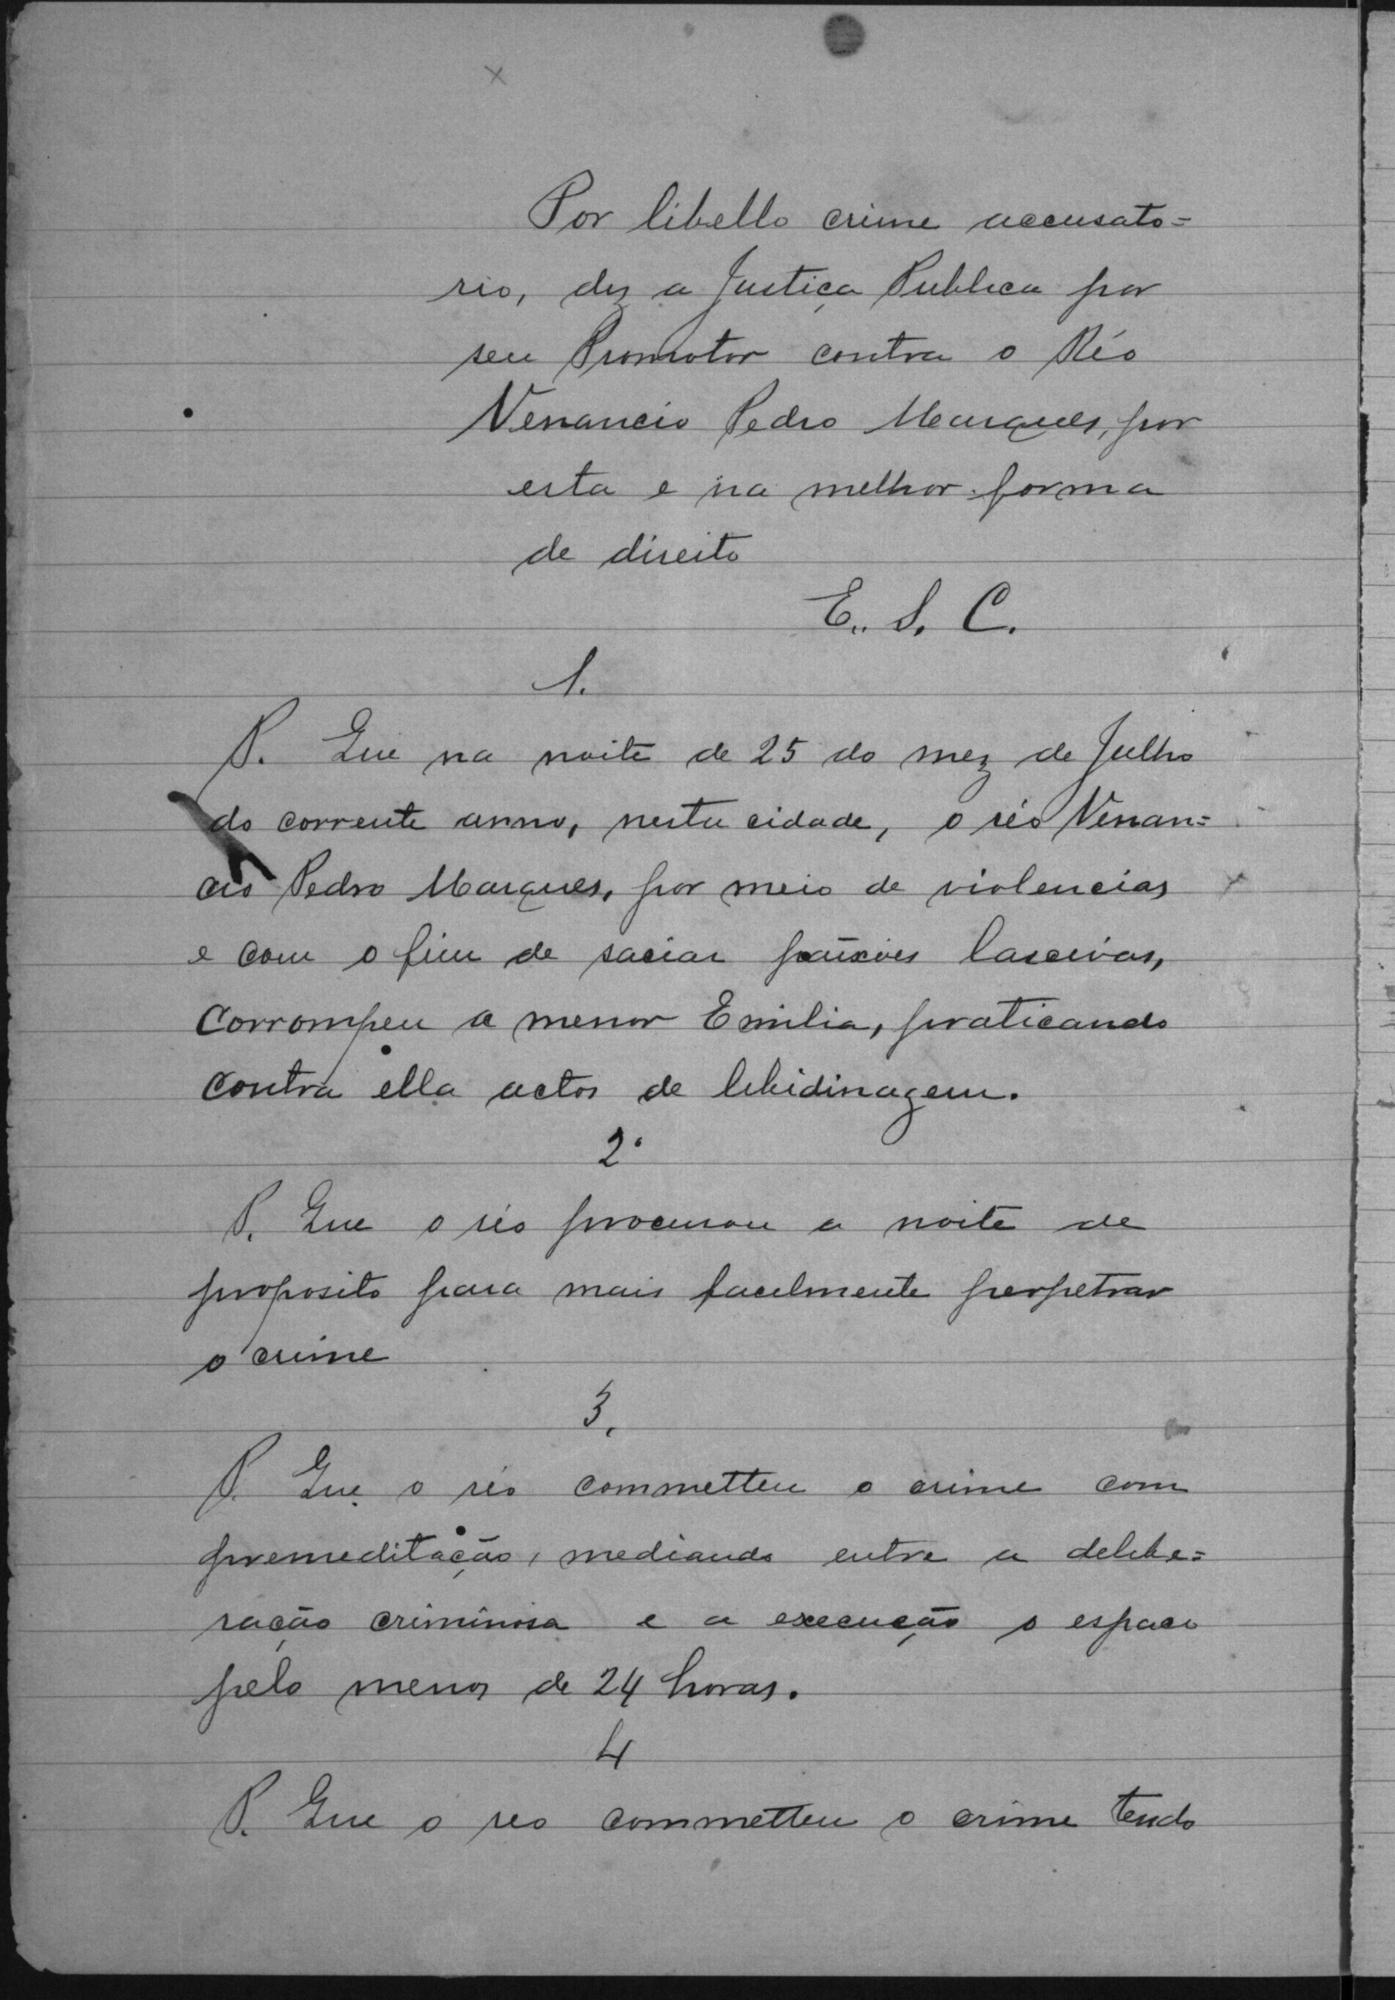 Por libello crime accusato=
rio, diz a Justiça Publica por
seu Promotor contra o Réo
Venancio Pedro Marques, por
esta e na melhor forma
de direito
E. S. C.
1.
P. Que na noite de 25 do mez de Julho
do corrente anno, nesta cidade, o réo Venan=
cio Pedro Marques, por meio de violencias
e com o fim de saciar paixões lascivas,
corrompeu a menor Emilia, praticando
contra ella actos de libidinagem.
2.
P. Que o réo procurou a noite de
proposito para mais facilmente perpetrar
o crime
3.
P. Que o réo commetteu o crime com
premeditação, mediando entre a delibe=
ração criminosa e a execução o espaco
pelo menos de 24 horas.
4
P. Que o reo commetteu o crime tendo